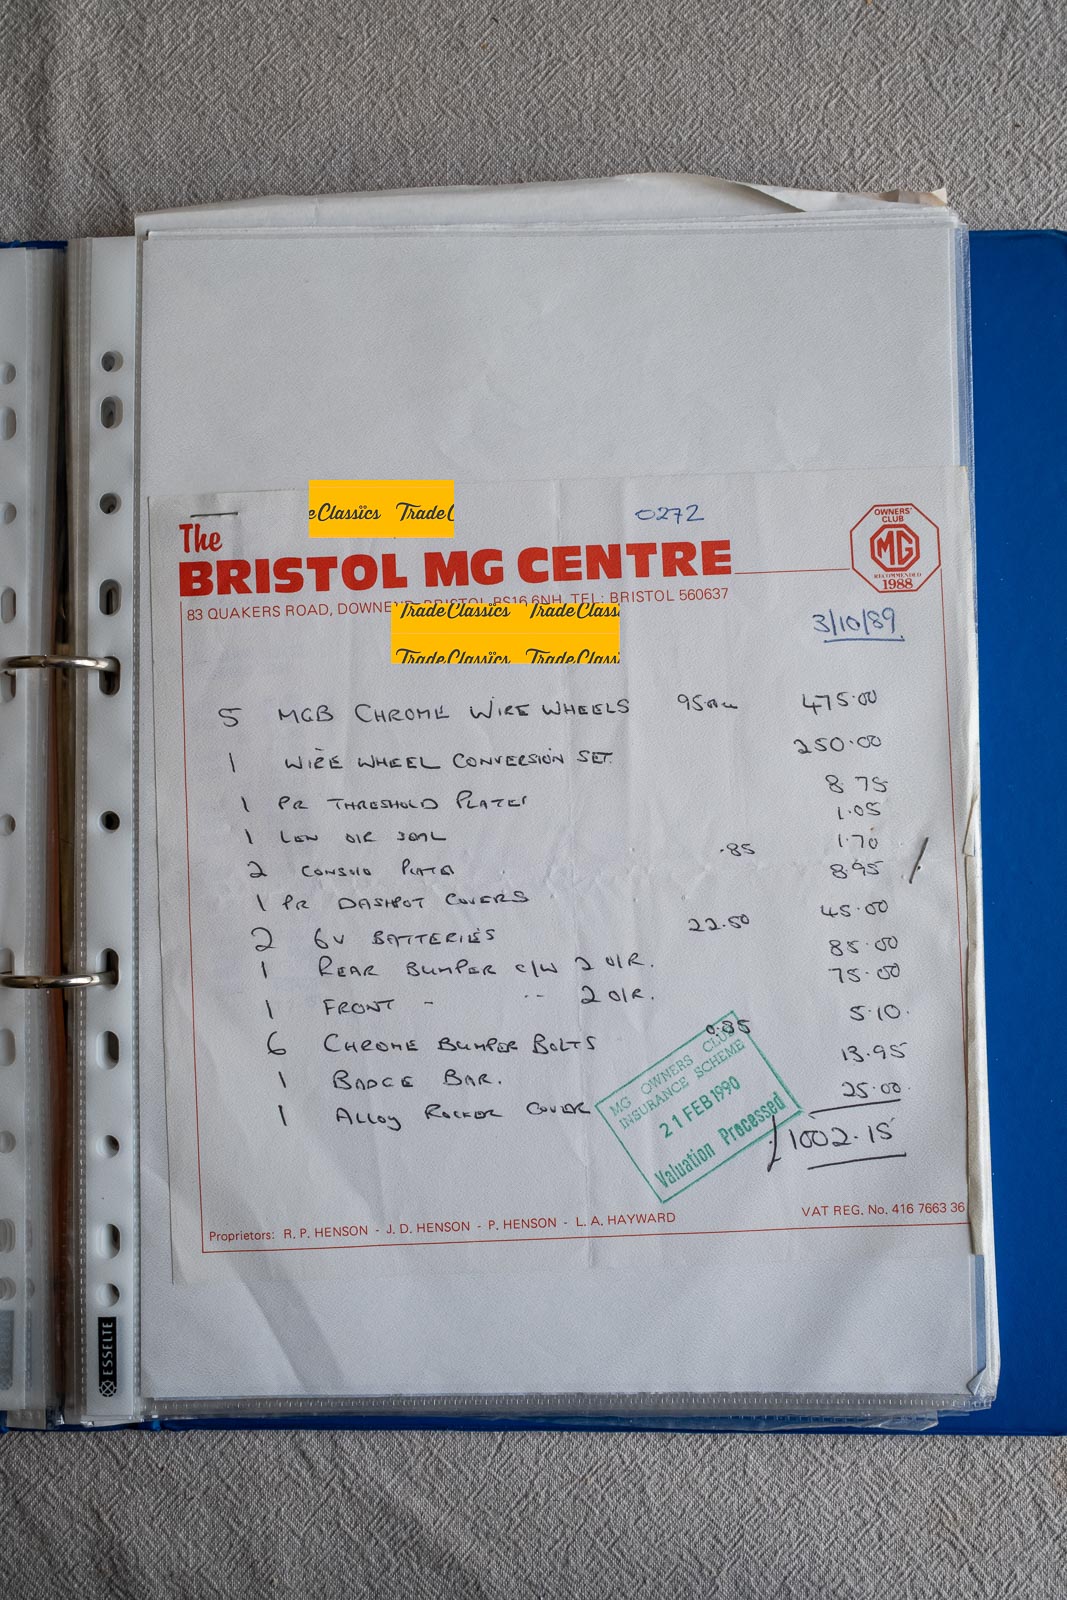 eClassics TradeC
0272
The
BRISTOL MG CENTRE
OWNERS'
CLUB
MG
RECOMMENDED
1988
83 QUAKERS ROAD, DOWNEND, BRISTOL BS16 6NH, TEL: BRISTOL 560637
TradeClassics TradeClassi
TradeClassics TradeClassi
3/10/89
5 MGB CHROME WIRE WHEELS 95 475.00
1 WIRE WHEEL CONVERSION SET. 250.00
1 PR THRESHOLD PLATES 8.75
1 SEAL 1.05
2 CONSOLE PLATES .85 1.70
1 PR DASHPOT COVERS 8.95
2 6V BATTERIES 22.50 45.00
1 REAR BUMPER C/W 2 O/R. 85.00
1 FRONT " " 2 O/R. 75.00
6 CHROME BUMPER BOLTS 0.85 5.10.
1 BADGE BAR. 13.95
1 ALLOY ROCKER COVER 25.00.
£1002.15
MG OWNERS CLUB
INSURANCE SCHEME
21 FEB 1990
Valuation Processed
Proprietors: R. P. HENSON - J. D. HENSON - P. HENSON - L. A. HAYWARD
VAT REG. No. 416 7663 36
ESSELTE